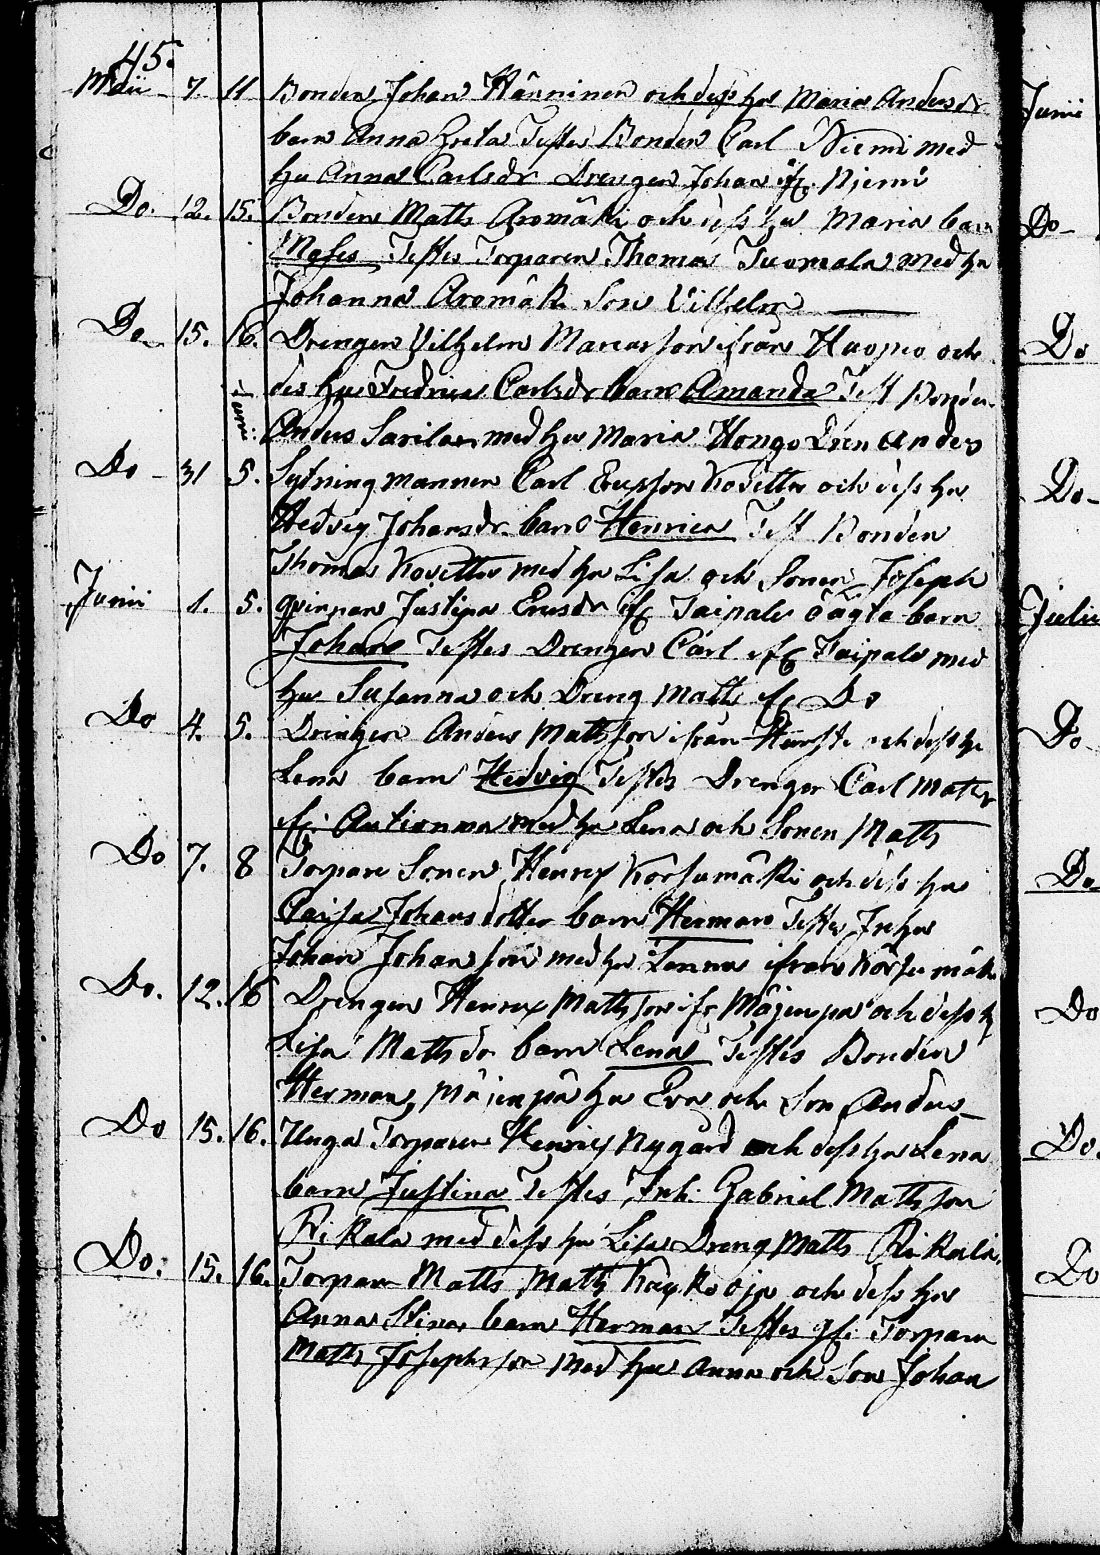 45.
Maii 7. 11 Bonden Johan Hänninen och dess hu Maria Andersdr
barn Anna Greta Testes Bonden Carl Niemi med
hu Anna Carlsdr Drengen Johan ifr. Niemi
Do. 12. 15. Bonden Matts Aromäki och dess hu Maria barn
Moses Testes Torparen Thomas Tuomala med hu
Johanna Aromäki Son Vilhelm
Do 15. 16. Drengen Vilhelm Marcusson ifrån Haapio och
des hu Fredrica Carlsdr barn Amanda Test Bonden
Anders Sarila med hu Maria Hongo Dren Anders
Do 31 5. Junii Sytning mannen Carl Ericsson Kovitta och dess hu
Hedvig Johansdr. barn Henrica Test Bonden
Thomas Kovitta med hu Lisa och Sonen Joseph
Junii 1. 5. qvinnan Justina Ericsdr ifr Taipale oägta barn
Johan Testes Drengen Carl ifr Taipale med
hu Susanna och Dreng Matts ifr Do
Do 4. 5. Drengen Anders Mattsson ifrån och dess hu
Lena barn Hedvig Testes Drengen Carl Matts
ifr. med hu Lena och Sonen Matts
Do 7. 8 Torpare Sonen Henric Körsumäki och dess hu
Caisa Johansdotter barn Herman Testes Inh
Johan Johansson med hu Lenna ifrån Körsumäki
Do. 12. 16 Drengen Henric Mattsson ifr Mäjenpä och dess hu
Lisa Mattsdr barn Lena Testes Bonden
Herman Mäjenpä hu Eva och Son Anders
Do 15. 16. Unga Torparen Henric Nygård och dess hu Lena
barn Justina Testes Inh. Gabriel Mattsson
Rikala med dess hu Lisa Dreng Matts Rikala.
Do. 15. 16. Torpare Matts Matts och dess hu
Anna Stina barn Herman Testes Torpare
Matts Josephsson med hu Anna och Son Johan
Junii
Do
Do
Do
Julii
Do
Do
Do
Do.
Do